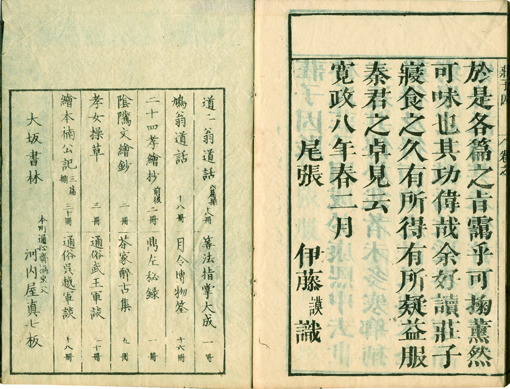 於是各篇之旨霈乎可掬薰然
可味也其功偉哉余好讀莊子
寢食之久有所得有所疑益服
秦君之卓見云
寛政八年春二月
尾張 伊藤 識
道二翁道話
算法指掌大成 一冊
鳩翁道話 十八冊
月令博物筌 十六冊
二十四孝繪抄 前後 二冊
鼎左秘録 一冊
陰隲文繪鈔 二冊
茶家醉古集 九冊
孝女操草 三冊
通俗武王軍談 二十冊
繪本楠公記 三十冊
通俗呉越軍談 十八冊
大坂書林
河内屋真七板